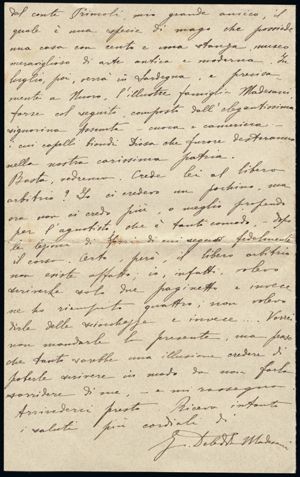 del conte Primoli mio grande amico, il
quale è una specie di mago che possiede
una casa con cento e una stanza, museo
meraviglioso di arte antica e moderna. In
luglio, poi, verrà in Sardegna, e precisa-
mente a Nuoro, l'illustre famiglia Madesani
forse col seguito composto dall'elegantissima
signorina Assunta – cuoca e cameriera –
i cui capelli biondi Dio sa che furore desteranno
nella nostra carissima patria.
Basta, vedremo. Crede lei al libero
arbitrio? Io ci credevo un pochino, ma
ora non ci credo più, o meglio propendo
per l'agnosticismo che è tanto comodo, dopo
le lezioni di di cui seguo fedelmente
il corso. Certo, però, il libero arbitrio
non esiste affatto; io, infatti, volevo
scriverle solo due paginette e invece
ne ho riempiute quattro; non volevo
dirle delle sciocchezze e invece ... Vorrei
non mandarle la presente, ma penso
che tanto sarebbe una illusione credere di
poterle scrivere in modo da non farla
sorridere di me, – e mi rassegno.
Arrivederci presto. Riceva intanto
i saluti più cordiali di
G. Deledda Madesani